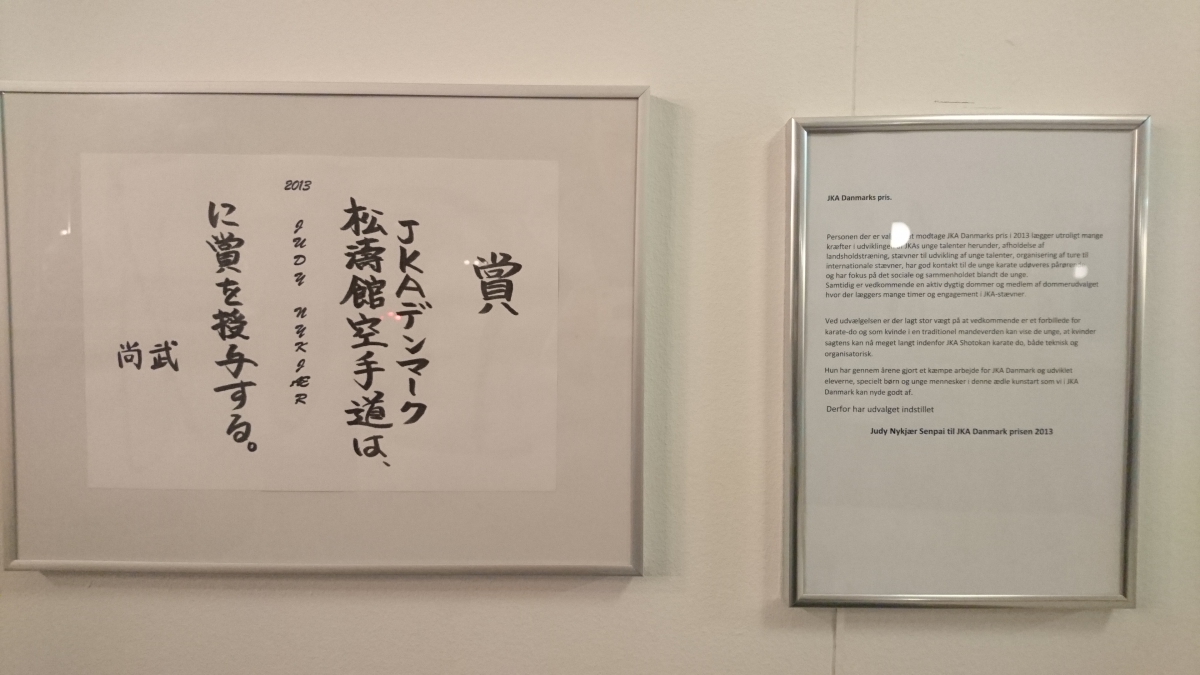 賞
JKAデンマーク
松濤館空手道は、
2013 JUDY NYKJÆR
に賞を授与する。
尚武
JKA Danmarks pris.
Personen der er val t modtage JKA Danmarks pris i 2013 lægger utroligt mange
kræfter i udviklingen af JKAs unge talenter herunder, afholdelse af
landsholdstræning, stævner til udvikling af unge talenter, organisering af ture til
internationale stævner, har god kontakt til de unge karate udøveres
og har fokus på det sociale og sammenholdet blandt de unge.
Samtidig er vedkommende en aktiv dygtig dommer og medlem af dommerudvalget
hvor der læggers mange timer og engagement i JKA-stævner
Ved udvælgelsen er der lagt stor vægt på at vedkommende er et forbillede for
karate-do og som kvinde i en traditionel mandeverden kan vise de unge, at kvinder
sagtens kan nå meget langt indenfor JKA Shotokan karate do, både teknisk og
organisatorisk.
Hun har gennem årene gjort et kæmpe arbejde for JKA Danmark og udviklet
eleverne, specielt børn og unge mennesker i denne ædle kunstart som vi i JKA
Danmark kan nyde godt af.
Derfor har udvalget indstillet
Judy Nykjær Senpai til JKA Danmark prisen 2013